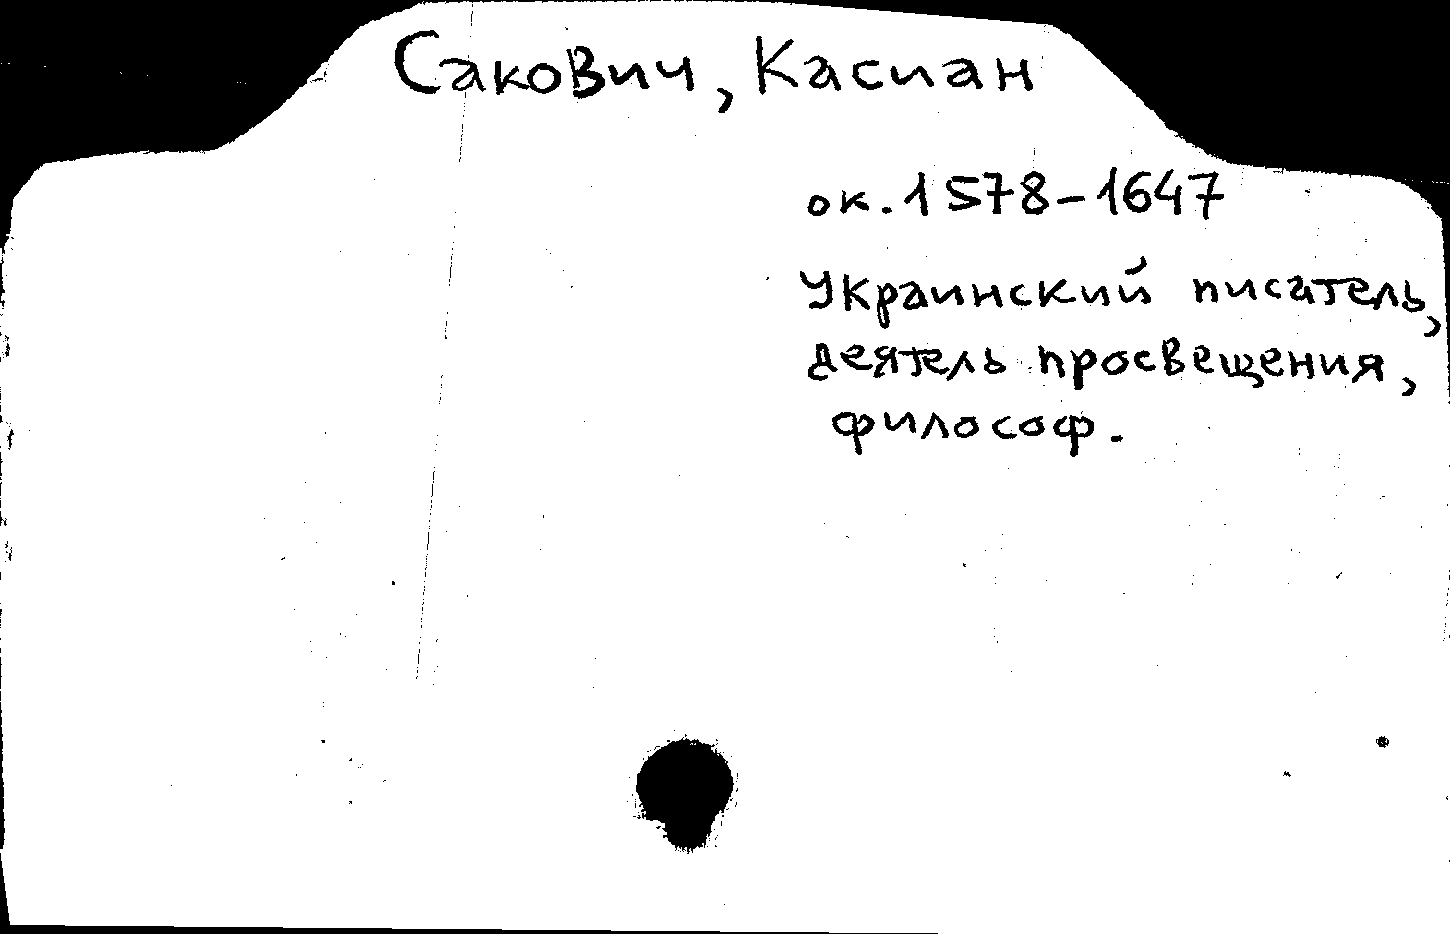 Сакович, Касиан
ок. 1578-1647
Украинский писатель,
деятель просвещения,
философ.